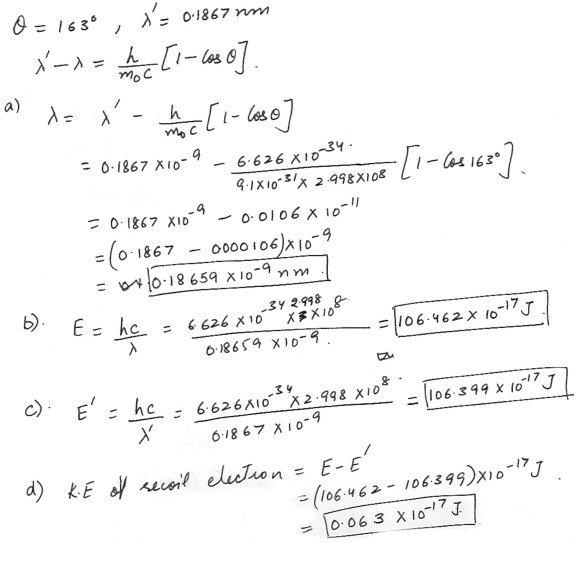 θ = 163° , λ' = 0.1867 nm
λ' - λ = h/m₀c [1 - Cos θ].
a) λ = λ' - h/m₀c [1 - Cos θ]
= 0.1867 × 10⁻⁹ - 6.626 × 10⁻³⁴ / 9.1 × 10⁻³¹ × 2.998 × 10⁸ [1 - Cos 163°].
= 0.1867 × 10⁻⁹ - 0.0106 × 10⁻¹¹
= (0.1867 - 0000106) × 10⁻⁹
= 0.18659 × 10⁻⁹ nm.
b). E = hc/λ = 6.626 × 10⁻³⁴ × 2.998 × 10⁸ / 0.18659 × 10⁻⁹. = 106.462 × 10⁻¹⁷ J.
c). E' = hc/λ' = 6.626 × 10⁻³⁴ × 2.998 × 10⁸ / 0.1867 × 10⁻⁹ = 106.399 × 10⁻¹⁷ J
d) K.E of recoil electron = E - E'
= (106.462 - 106.399) × 10⁻¹⁷ J.
= 0.063 × 10⁻¹⁷ J.